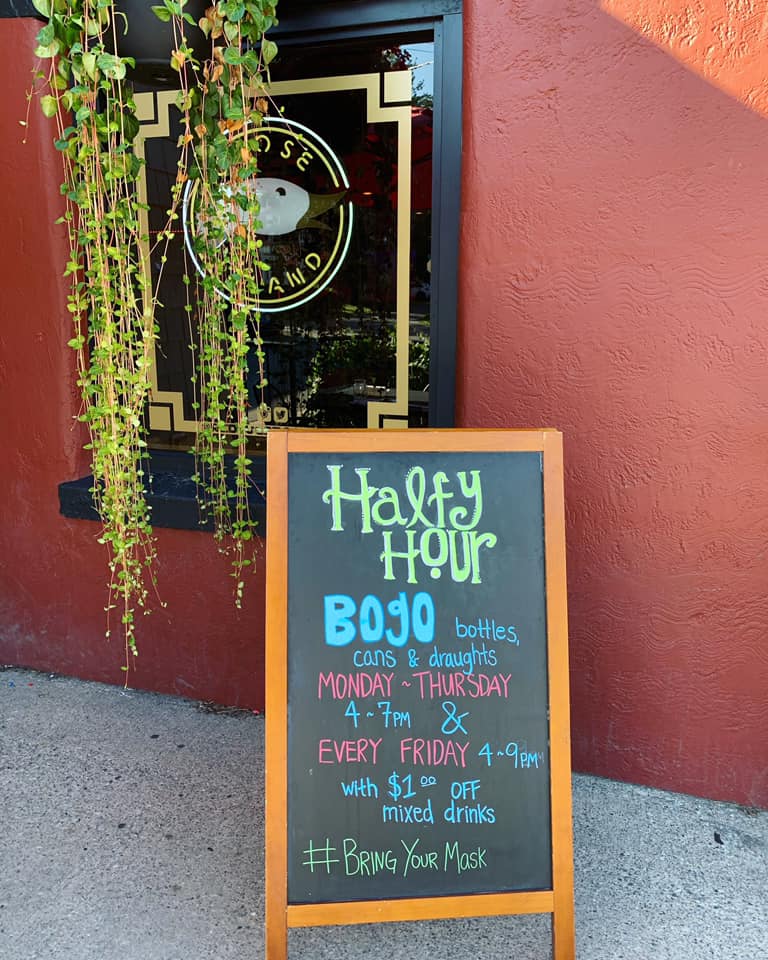 Halfy
Hour
BOGO bottles,
cans & draughts
MONDAY ~ THURSDAY
4 ~ 7PM &
EVERY FRIDAY 4 ~ 9PM
with $1.00 OFF
mixed drinks
#BRING YOUR MASK